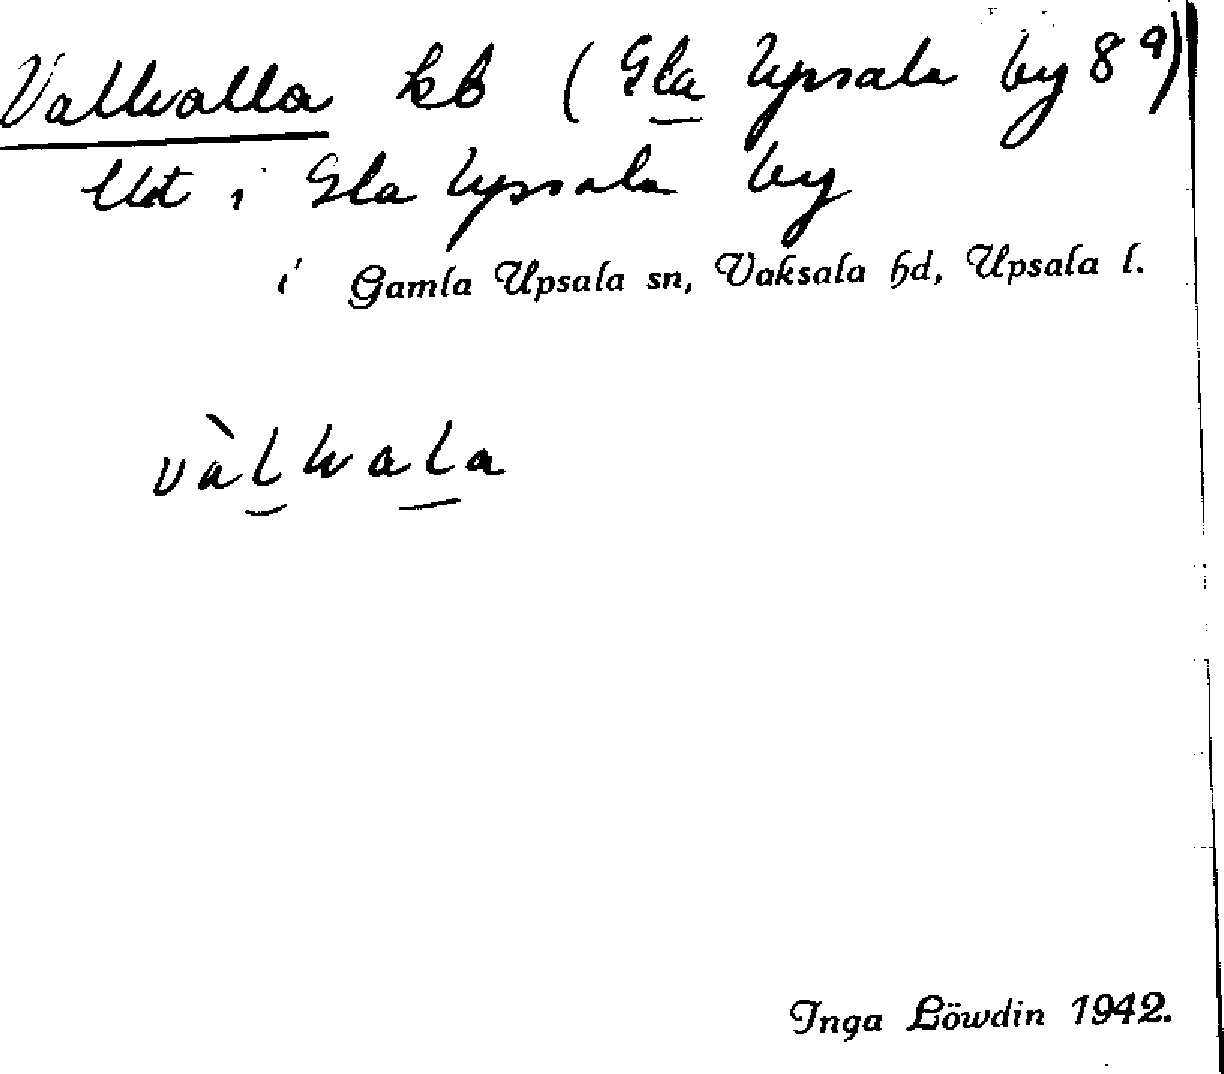 Valhalla hb (Gla Upsala by 8ª)
Ust i Gla Upsala by
i Gamla Upsala sn, Vaksala hd, Upsala l.
vàlhala
Inga Löwdin 1942.